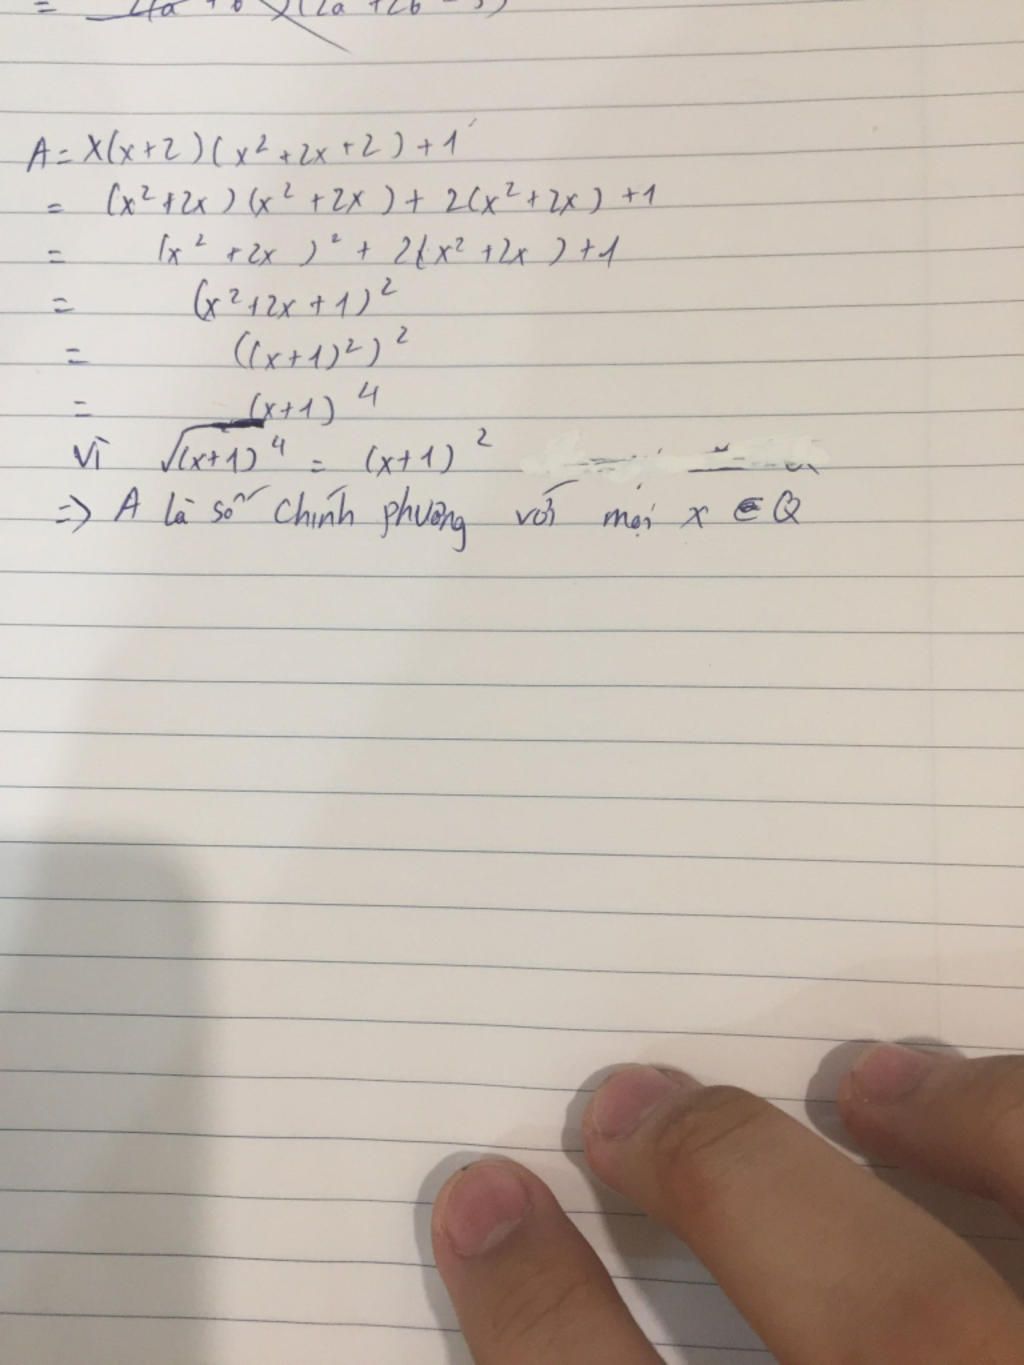 A = x(x+2)(x² + 2x + 2) + 1
= (x² + 2x)(x² + 2x) + 2(x² + 2x) + 1
= (x² + 2x)² + 2(x² + 2x) + 1
= (x² + 2x + 1)²
= ((x+1)²)²
= (x+1)⁴
Vì √(x+1)⁴ = (x+1)²
=> A là số chính phương với mọi x ∈ Q